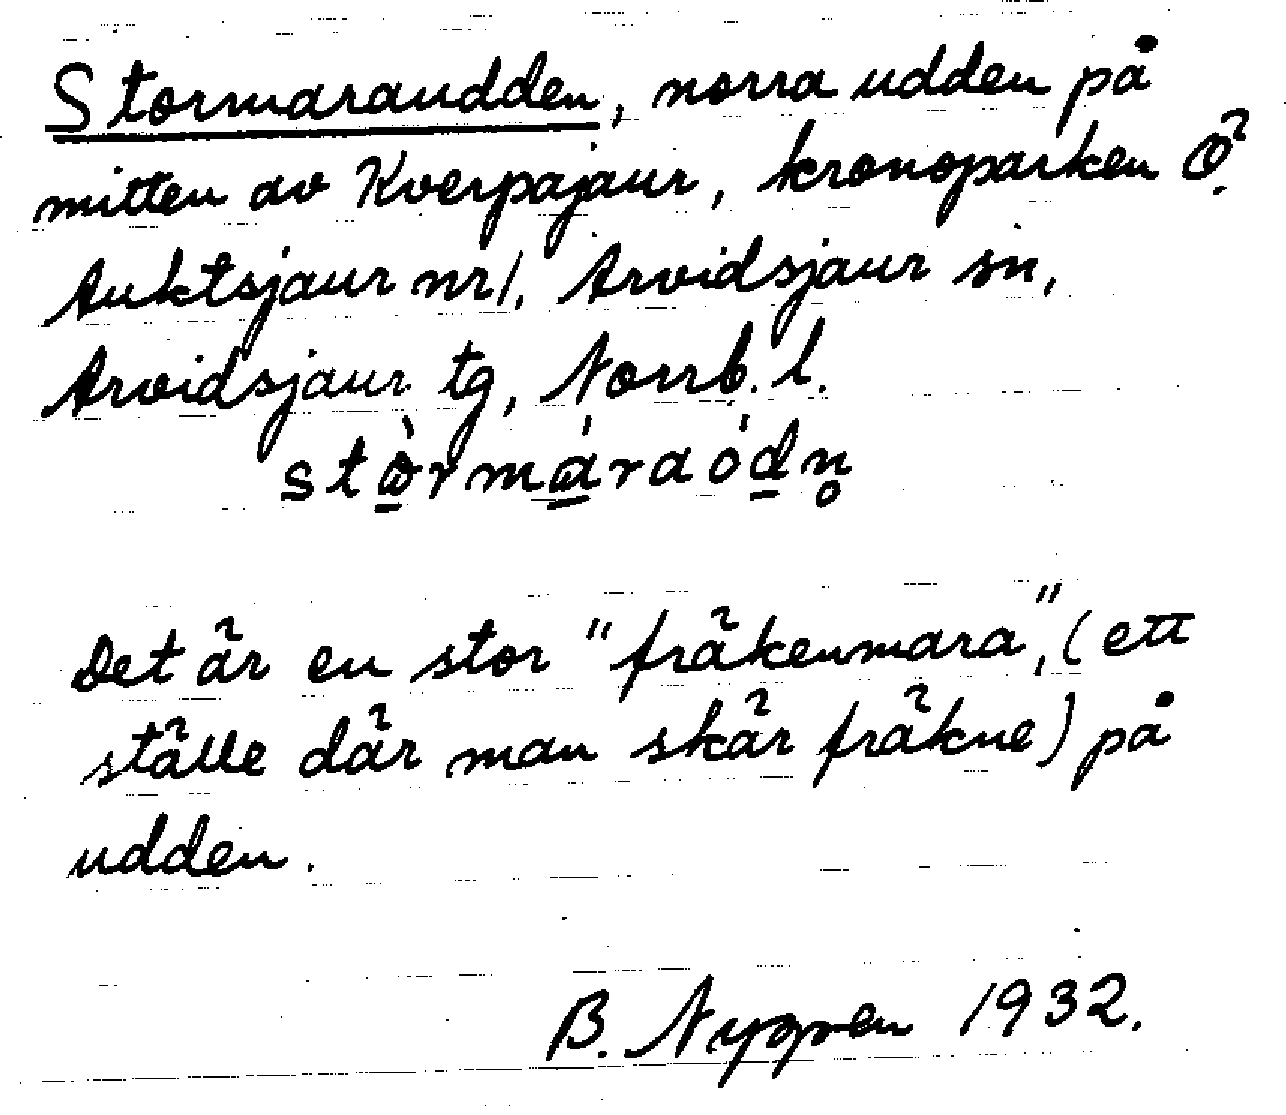 Stormaraudden, norra udden på
mitten av Kverpajaur, kronoparken Ö.
Auktsjaur nr 1. Arvidsjaur sn,
Arvidsjaur tg, Norrb. l.
stò̱rmá̱raóḏn̥
Det är en stor "fräkenmara", (ett
ställe där man skär fräkne) på
udden.
B. Nygren 1932.